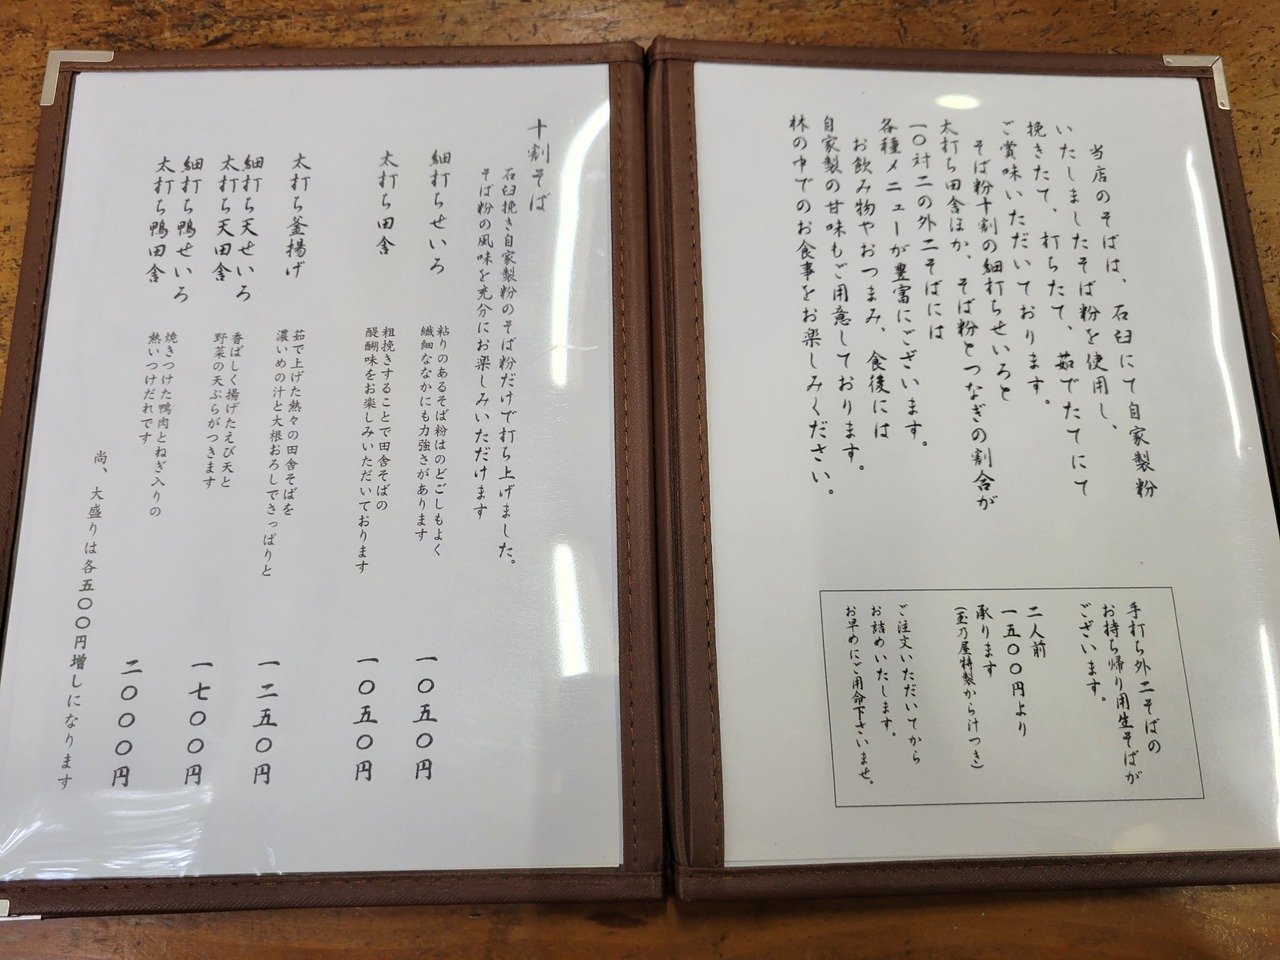 当店のそばは、石臼にて自家製粉
いたしましたそば粉を使用し、
挽きたて、打ちたて、茹でたてにて
ご賞味いただいております。
そば粉十割の細打ちせいろと
太打ち田舎ほか、そば粉とつなぎの割合が
一〇対二の外二そばには
各種メニューが豊富にございます。
お飲み物やおつまみ、食後には
自家製の甘味もご用意しております。
林の中でのお食事をお楽しみください。
手打ち外二そばの
お持ち帰り用生そばが
ございます。
二人前
一五〇〇円より
承ります
(玉乃屋特製からけつき)
ご注文いただいてから
お詰めいたします。
お早めにご用命下さいませ。
十割そば
石臼挽き自家製粉のそば粉だけで打ち上げました。
そば粉の風味を充分にお楽しみいただけます
細打ちせいろ
粘りのあるそば粉はのどごしもよく
繊細ななかにも力強さがあります
一〇五〇円
太打ち田舎
粗挽きすることで田舎そばの
醍醐味をお楽しみいただいております
一〇五〇円
太打ち釜揚げ
茹で上げた熱々の田舎そばを
濃いめの汁と大根おろしでさっぱりと
一二五〇円
細打ち天せいろ
太打ち天田舎
香ばしく揚げたえび天と
野菜の天ぷらがつきます
一七〇〇円
細打ち鴨せいろ
太打ち鴨田舎
焼きつけた鴨肉とねぎ入りの
熱いつけだれです
二〇〇〇円
尚、大盛りは各五〇〇円増しになります